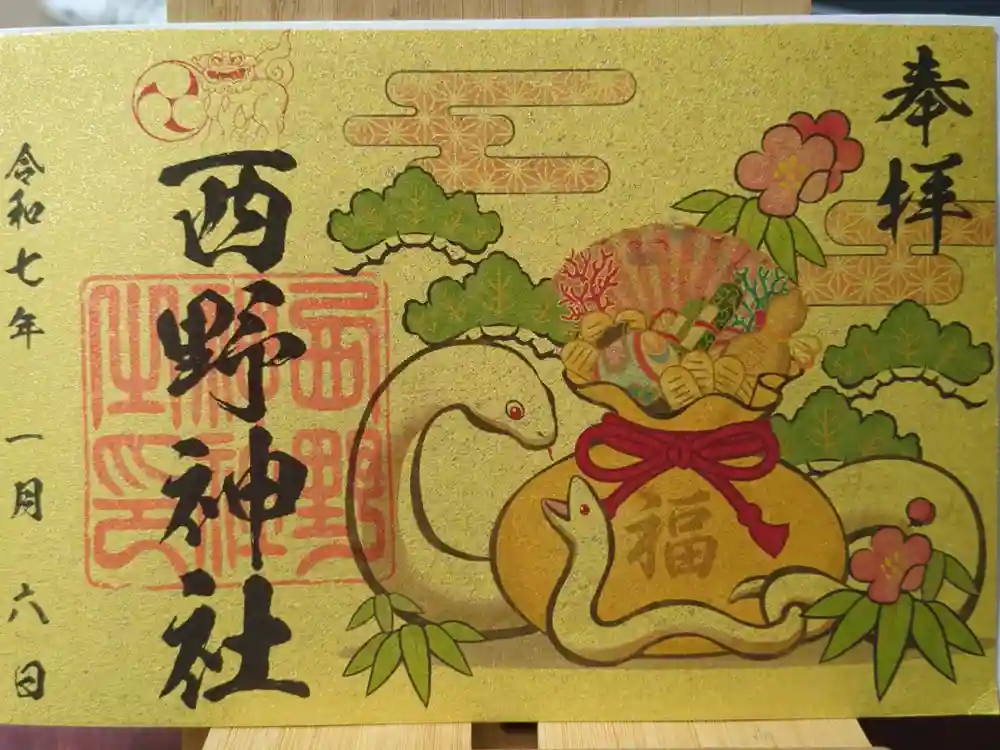 奉拝
福
西野神社
西野神社之印
令和七年 一月 六日